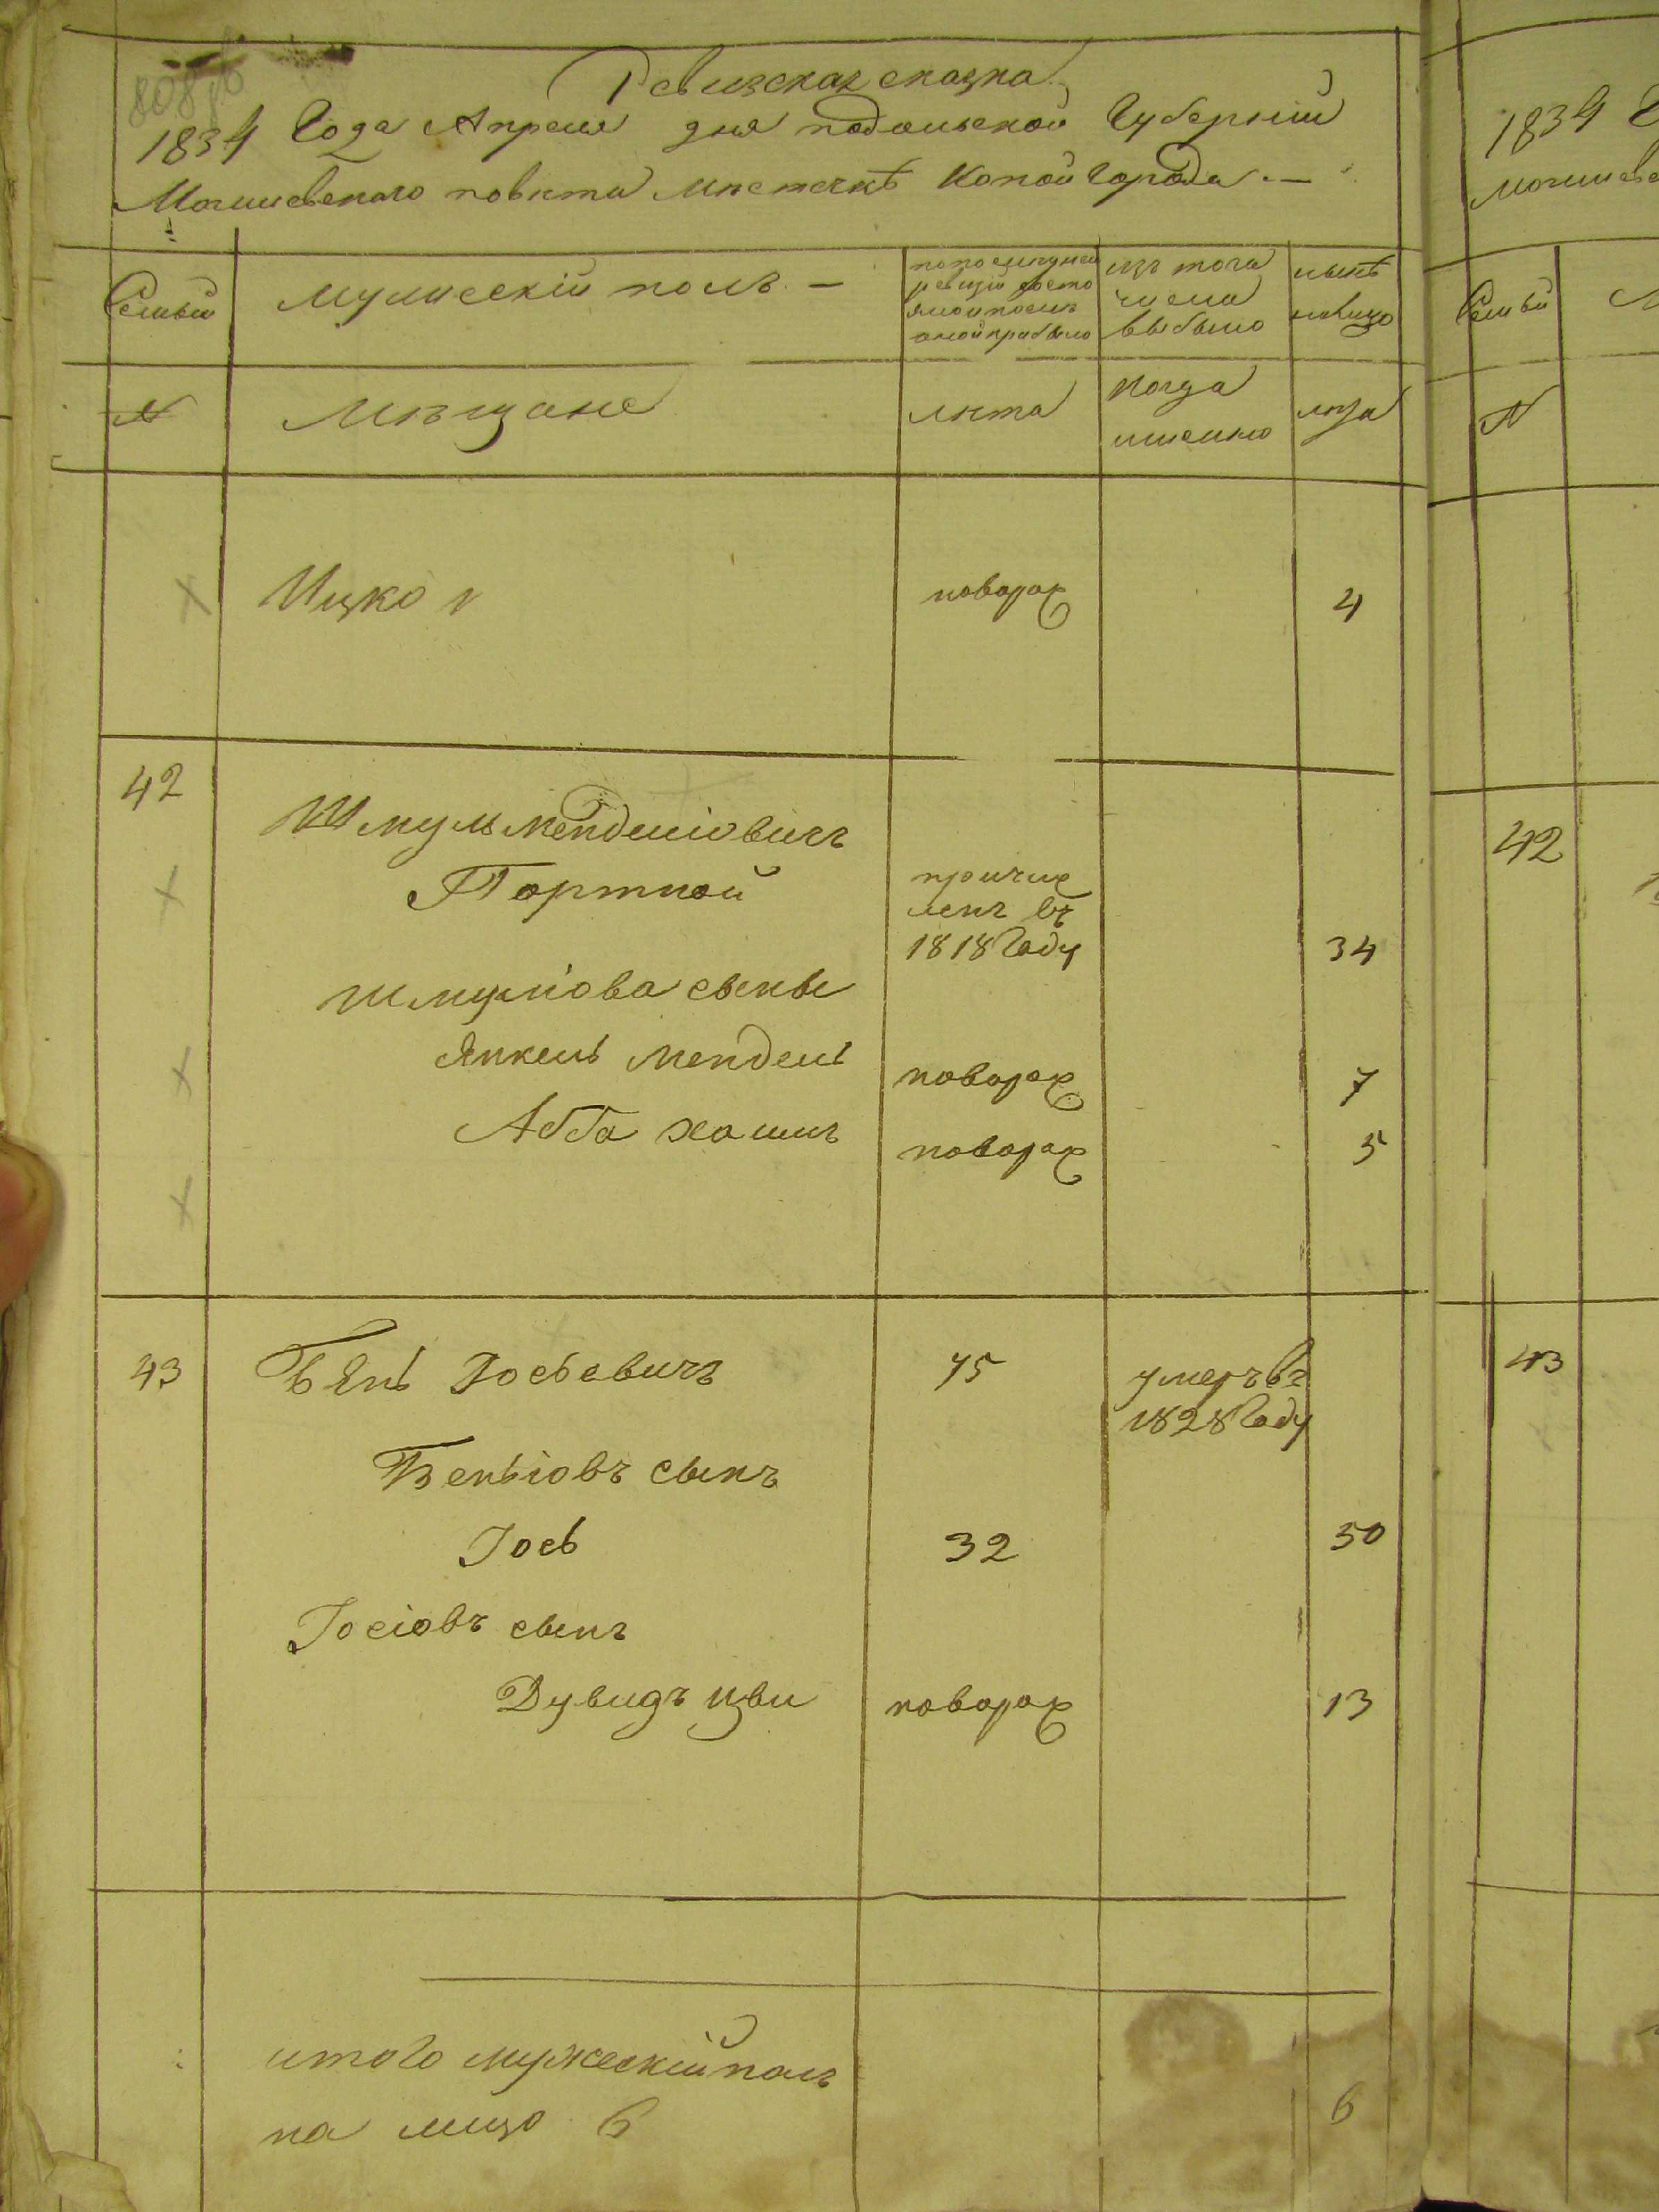 Ревизская сказка
1834 Года Апреля дня подольской Губернiи
Могилевского повѣта мѣстечкѣ Копойгорода. —
Семьи
мужескiй полъ. —
по последней
ревизiи состо
яло и послѣ
оной прибыло
изъ того
числа
выбыло
нынѣ
на лицо
№
Мѣщане
лѣта
когда
именно
лѣта
Ицко
новорож
4
42
Шмуль Менделiовичъ
Портной
причис
ленъ въ
1818 Году
34
Шмулiова сыны
Янкель Мендель
новорож
7
Абба хаимъ
новорож
5
43
Бѣнь Iосьевичъ
45
умеръ въ
1828 Году
Беньiовъ сынъ
Iось
32
50
Iосiовъ сынъ
Дувидъ цви
новорож
13
итого мужескiй полъ
на лицо 6
6
1834
Семьи
№
42
43